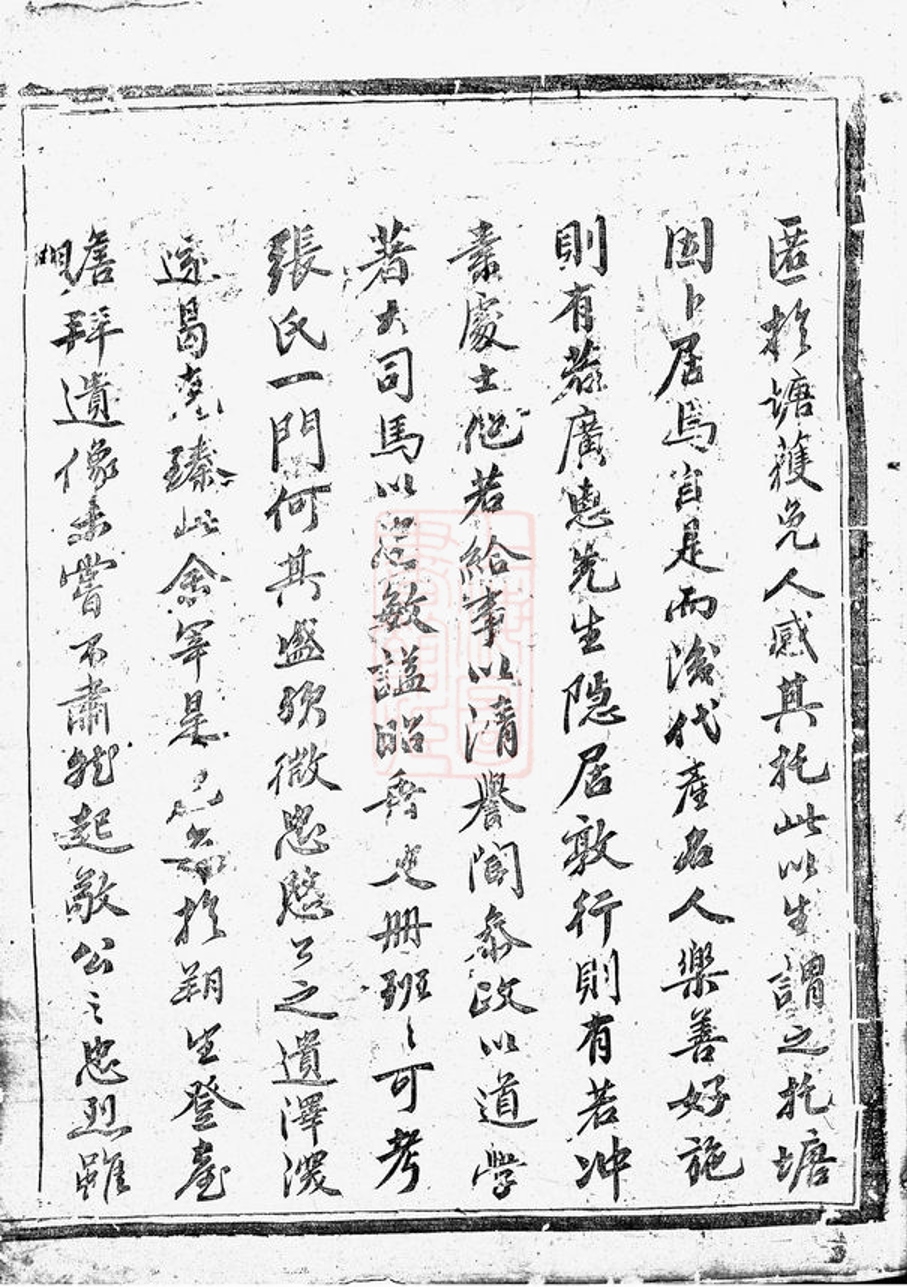 匿於塘獲免人感其托此以生謂之托塘
因卜居焉自是而後代產名人樂善好施
則有若廣惠先生隱居敦行則有若冲
素處士他若給事以清譽聞叅政以道學
著大司馬以忠敏謚昭垂史冊班〻可考
張氏一門何其盛歟微忠愍公之遺澤深
遠曷克臻此余宰是邑於朔望登臺
瞻拜遺像未嘗不肅然起敬公之忠烈雖